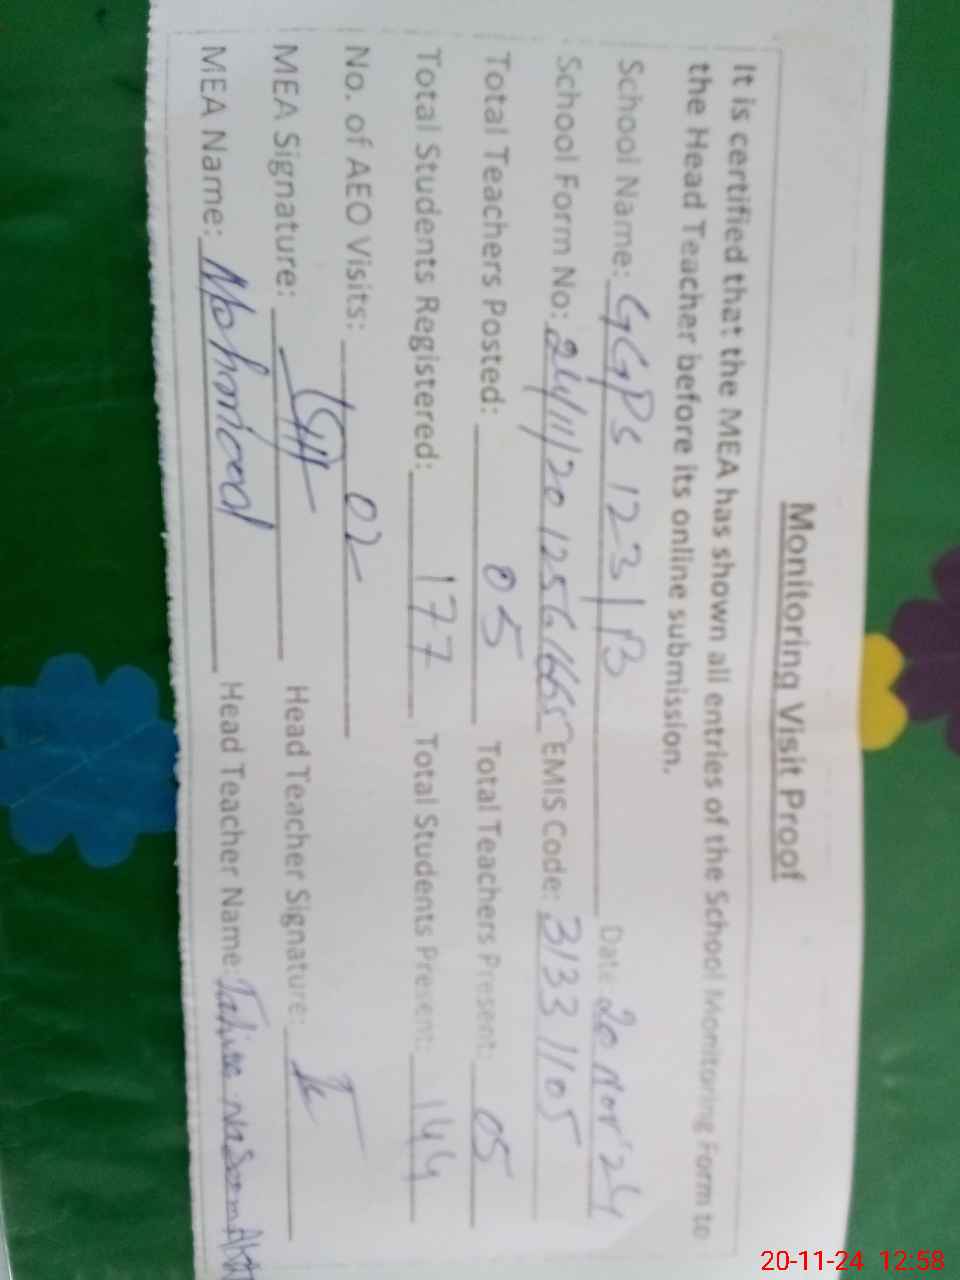 Monitoring Visit Proof
It is certified that the MEA has shown all entries of the School Monitoring Form to
the Head Teacher before its online submission.
School Name: GGPS 123/B Date: 20 Nov'24
School Form No: 24/11/20 1256 EMIS Code: 31331105
Total Teachers Posted: 05 Total Teachers Present: 05
Total Students Registered: 177 Total Students Present: 144
No. of AEO Visits: 02
MEA Signature: Head Teacher Signature:
MEA Name: Mahmood Head Teacher Name:
20-11-24 12:58